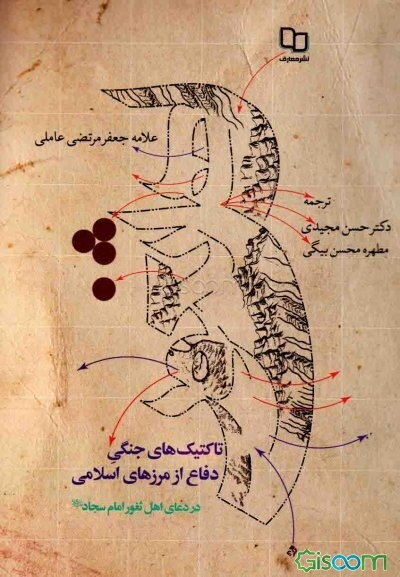 نشر معارف
علامه جعفر مرتضی عاملی
ترجمه
دکتر حسن مجیدی
مطهره محسن بیگی
تاکتیک‌های جنگی
دفاع از مرزهای اسلامی
در دعای اهل ثغور امام سجاد
Gisoom